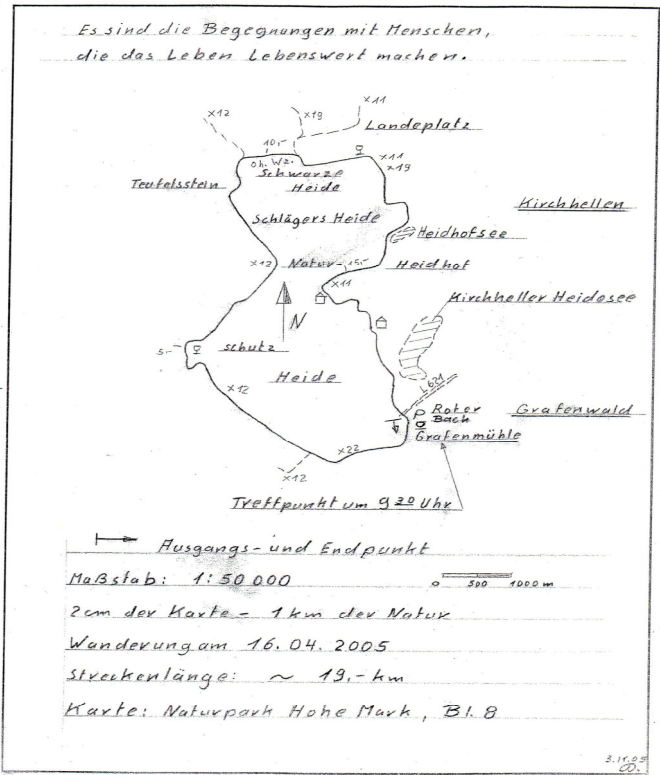 Es sind die Begegnungen mit Menschen,
die das Leben Lebenswert machen.
x12
x19
x11
Landeplatz
10,-
Oh. Wz.
x11
x19
Schwarze
Heide
Teufelsstein
Kirchhellen
Schlägers Heide
Heidhofsee
x12
Natur-
15,-
Heidhof
x11
Kirchheller Heidesee
N
5,-
schutz
L621
Heide
x12
P
Roter
Bach
Grafenwald
Grafenmühle
x22
x12
Treffpunkt um 9 30 Uhr
Ausgangs- und Endpunkt
Maßstab: 1:50 000
0 500 1000 m
2cm der Karte - 1 km der Natur
Wanderung am 16.04.2005
Streckenlänge: ~ 19,- km
Karte: Naturpark Hohe Mark, Bl. 8